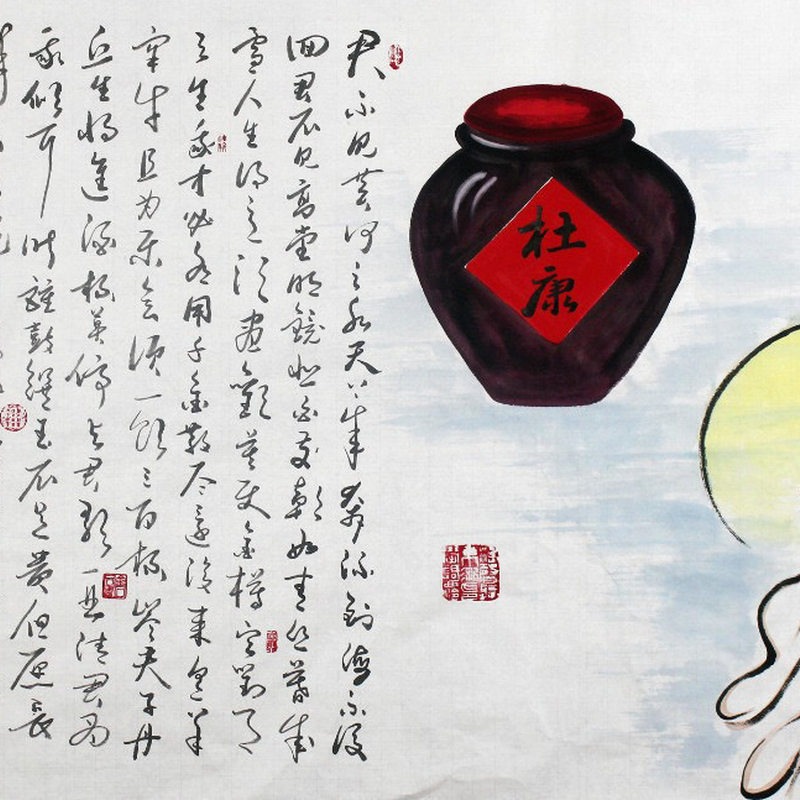 君不见黄河之水天上来奔流到海不復
回君不见高堂明鏡悲白髮朝如青丝暮成
雪人生得意須盡歡莫使金樽空對月
天生我才必有用千金散尽還復来烹羊
宰牛且为乐会須一飲三百杯岑夫子丹
丘生將進酒杯莫停与君歌一曲請君為
我倾耳听鐘鼓饌玉不足貴但愿長
杜康